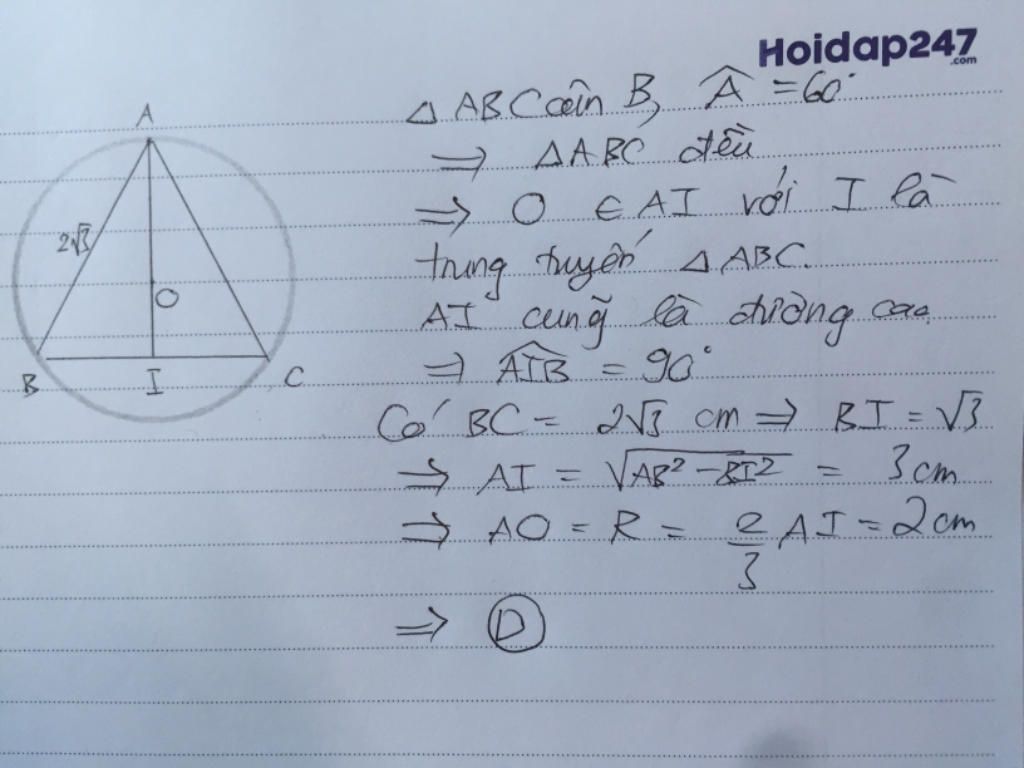 Hoidap247
.com
△ ABC cân B, Â = 60°
⇒ △ABC đều
⇒ O ∈ AI với I là
trung tuyến △ ABC.
AI cũng là đường cao.
⇒ AIB̂ = 90°
Có BC = 2√3 cm ⇒ BI = √3
⇒ AI = √(AB² - BI²) = 3cm
⇒ AO = R = 2/3 AI = 2cm
⇒ D
A
2√3
O
B I C